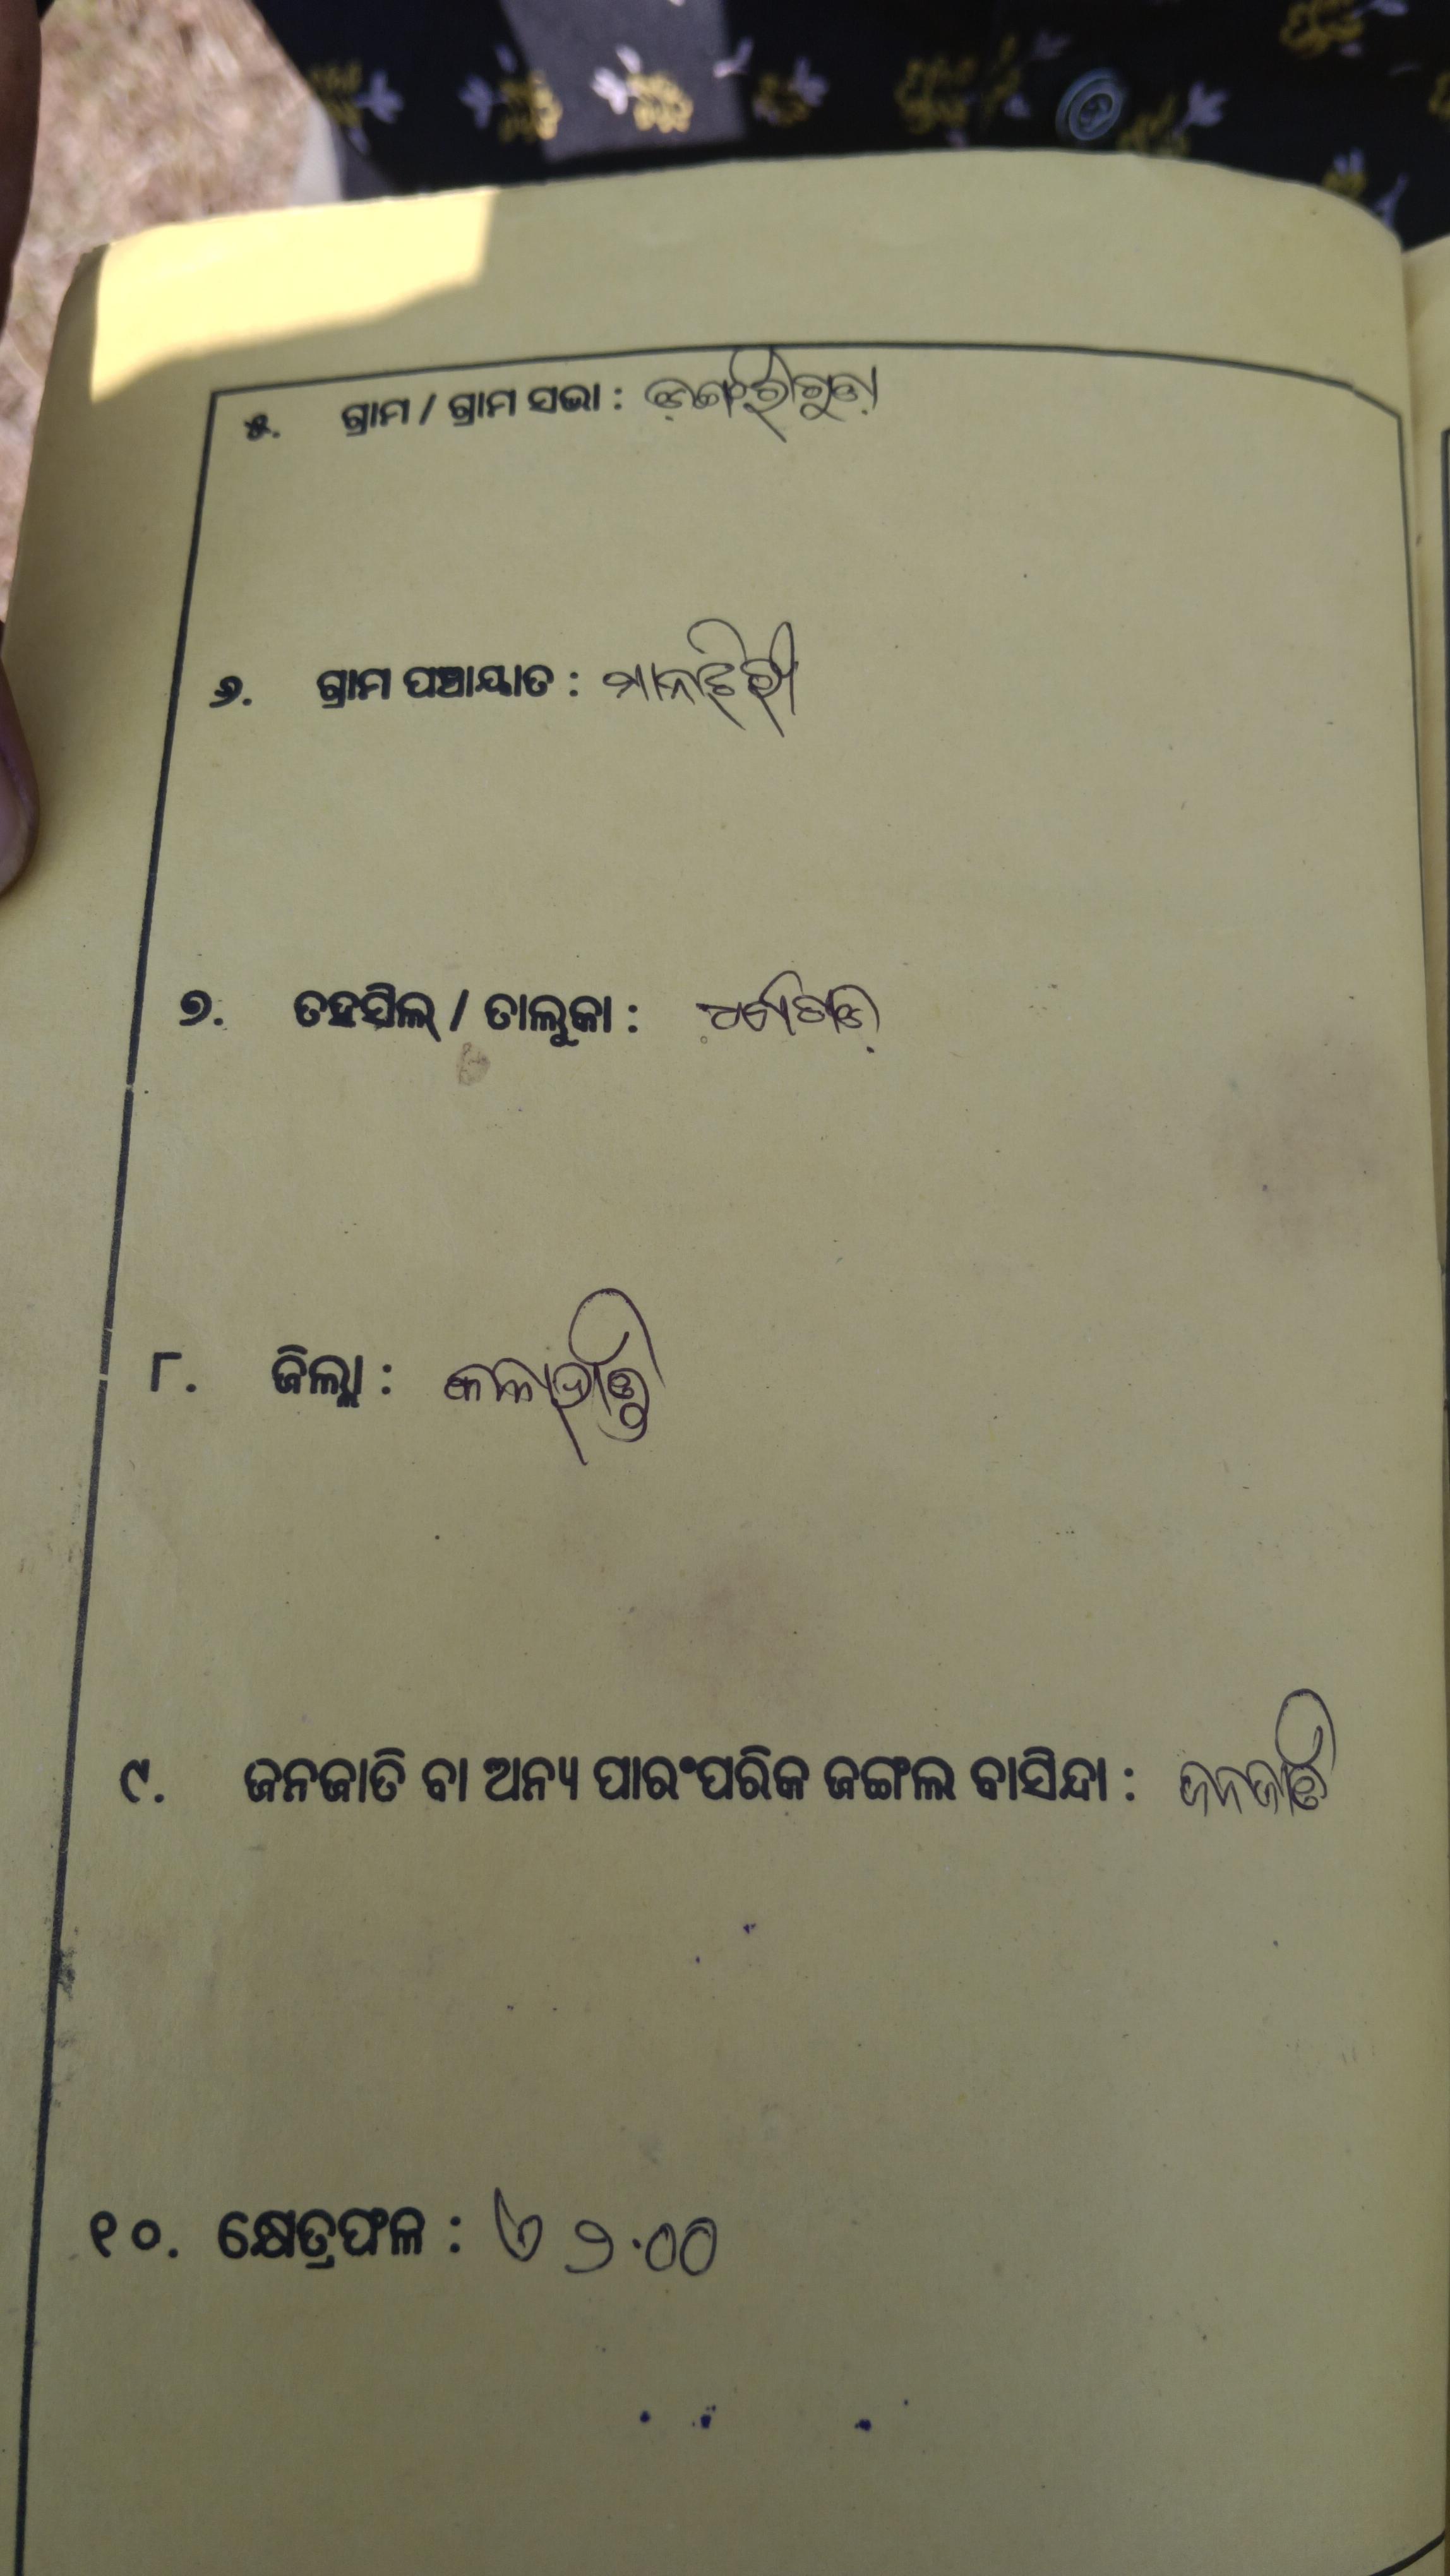 ୫. ଗ୍ରାମ / ଗ୍ରାମ ସଭା :
୬. ଗ୍ରାମ ପଞ୍ଚାୟାତ :
୭. ତହସିଲ୍ / ତାଲୁକା :
୮. ଜିଲ୍ଲା : କଳାହାଣ୍ଡି
୯. ଜନଜାତି ବା ଅନ୍ୟ ପାରଂପରିକ ଜଙ୍ଗଲ ବାସିନ୍ଦା : ଜନଜାତି
୧୦. କ୍ଷେତ୍ରଫଳ : ୨.୦୦